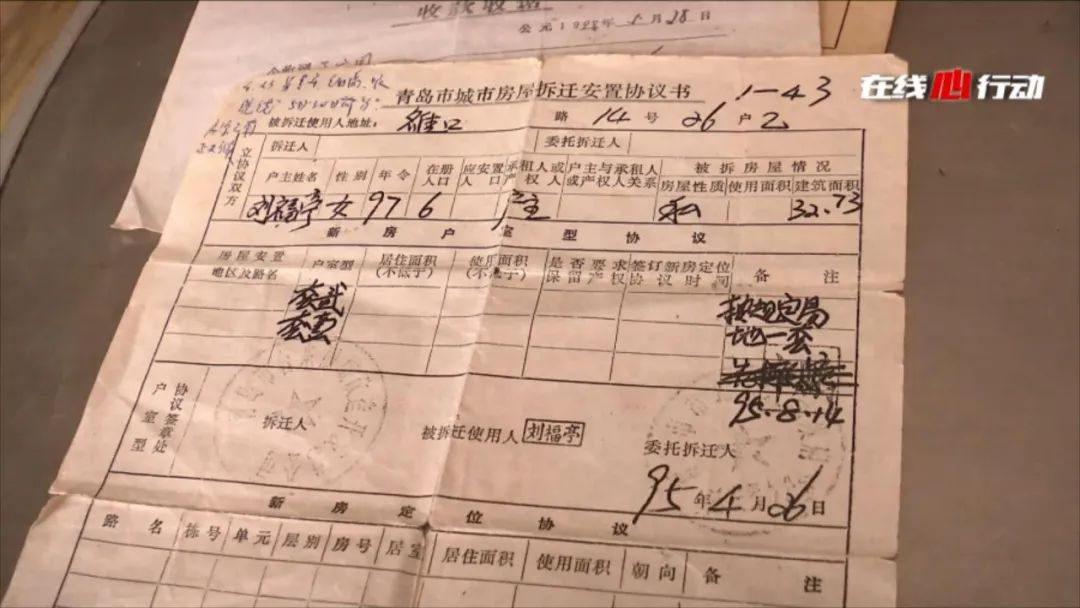 收款收据
公元1998年5月28日
在线心行动
青岛市城市房屋拆迁安置协议书 1-43
被拆迁使用人地址: 雒口 路 14 号 26 户 乙
立协议双方
拆迁人 委托拆迁人
户主姓名 性别 年令 在册人口 应安置人口 承租人或产权人 户主与承租人或产权人关系 被拆房屋情况
房屋性质 使用面积 建筑面积
刘福亭 女 97 6 产主 私 32.73
新房户室型协议
房屋安置地区及路名 户室型 居住面积(不低于) 使用面积(不低于) 是否要求保留产权 签订新房定位协议时间 备注
套贰
套壹
按规定易
地一套
95.8.14
户室型协议签章处
拆迁人 被拆迁使用人 刘福亭 委托拆迁人
95年4月26日
新房定位协议
路名 栋号 单元 层别 房号 居室 居住面积 使用面积 朝向 备注